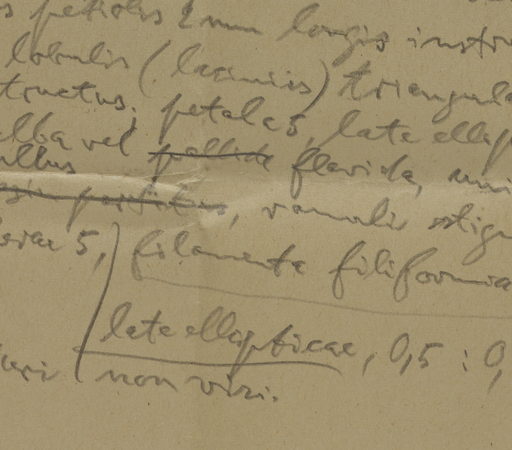 s petiolis 2 mm longis instru
lobulis (laciniis) triangula
structus. petala 5, late ellip
alba vel pallida flavida, uni
ullus
, ramulis stig
5, filamenta filiformia
late ellipticae, 0,5 : 0,
non vixi.